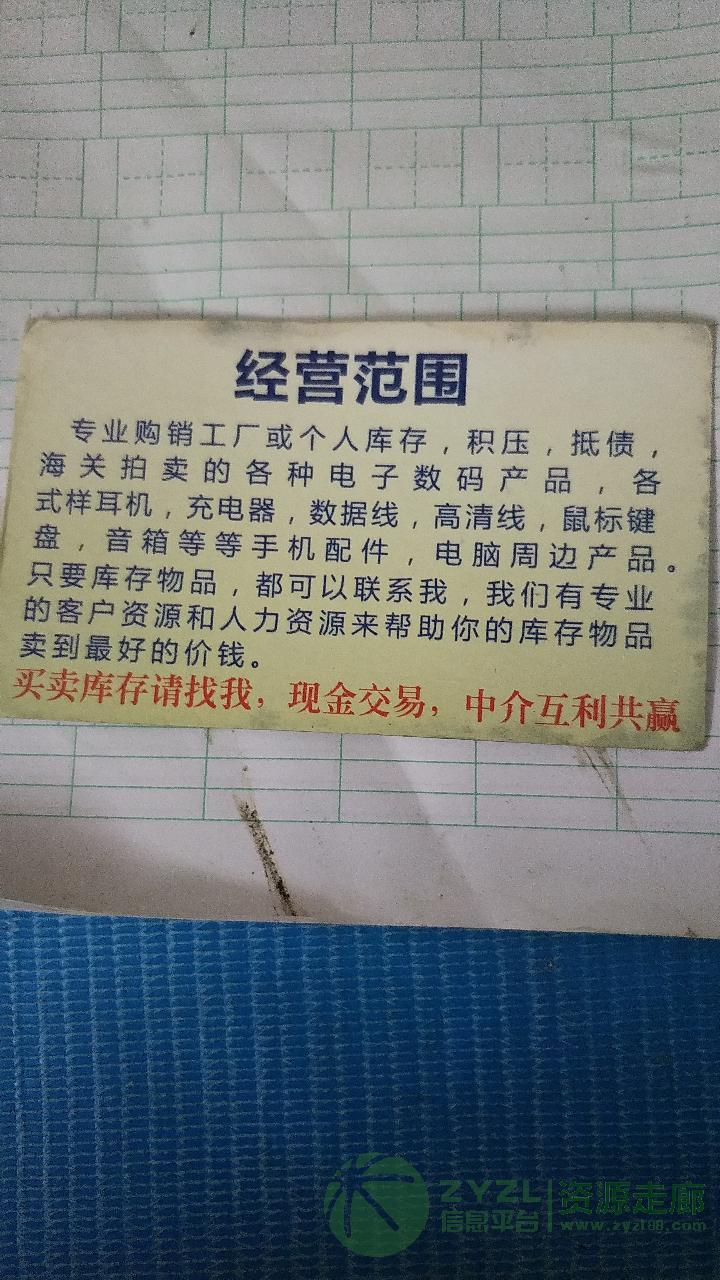 经营范围
专业购销工厂或个人库存，积压，抵债，
海关拍卖的各种电子数码产品，各
式样耳机，充电器，数据线，高清线，鼠标键
盘，音箱等等手机配件，电脑周边产品。
只要库存物品，都可以联系我，我们有专业
的客户资源和人力资源来帮助你的库存物品
卖到最好的价钱。
买卖库存请找我，现金交易，中介互利共赢
ZYZL 资源走廊
信息平台 www.zyzl88.com